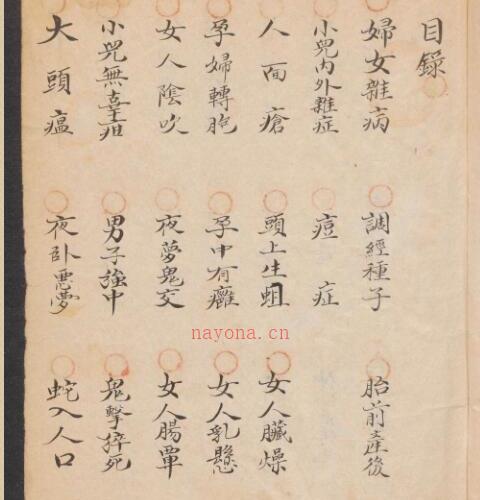 目錄
婦女雜病 調經種子 胎前產後
小兒內外雜症 痘症
人面瘡 頭上生蛆 女人臟燥
孕婦轉胞 孕中有癰 女人乳懸
女人陰吹 夜夢鬼交 女人腸覃
小兒無辜疳 男子強中 鬼擊猝死
大頭瘟 夜卧惡夢 蛇入人口
nayona.cn